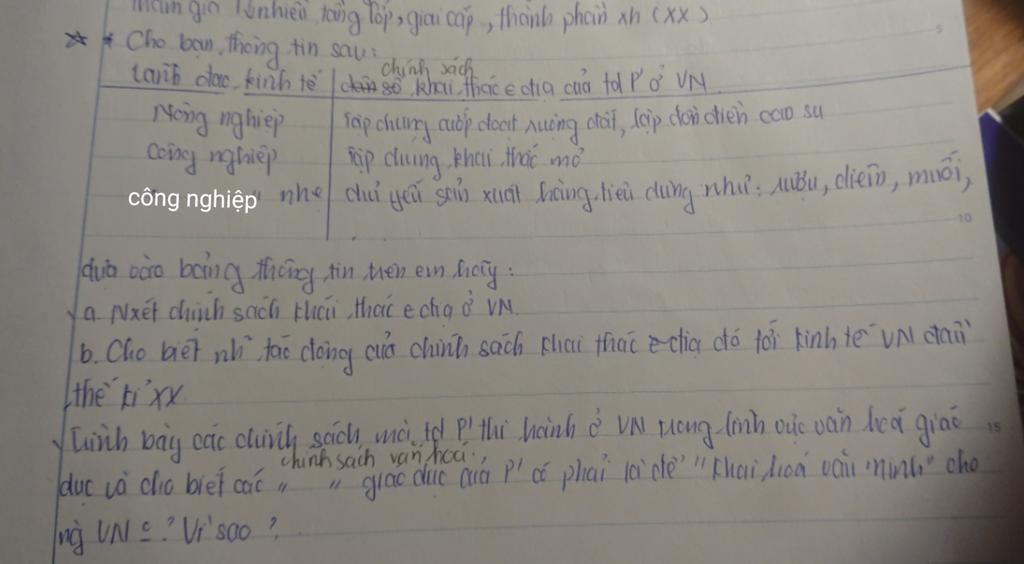 tham gia từ nhiều tầng lớp, giai cấp, thành phần xh (XX)
☆ * Cho bạn thông tin sau:
chính sách
Lĩnh vực kinh tế | số khai thác e địa của td P' ở VN
Nông nghiệp | Tập chung cướp đoạt ruộng đất, lập đồn điền cao su
Công nghiệp | Tập chung khai thác mỏ
công nghiệp nhẹ | chủ yếu sản xuất hàng tiêu dùng như: rượu, diêm, muối,
dựa vào bảng thông tin trên em hãy:
a. Nxét chính sách khai thác e địa ở VN.
b. Cho biết nh tác động của chính sách khai thác e địa đó tới kinh tế VN đầu
thế kỉ XX
Trình bày các chính sách mà td P' thi hành ở VN trong lĩnh vực văn hoá giáo
chính sách văn hoá
dục và cho biết các " " giáo dục của P' có phải là để "khai hoá văn minh" cho
ng VN ? Vì sao?